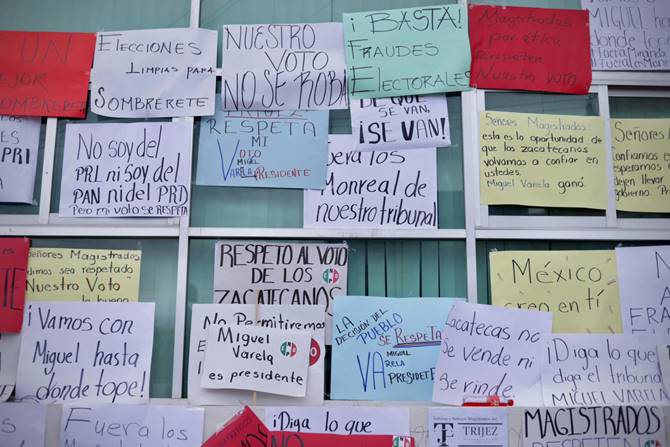 UN
MEJOR
SOMBRERETE
ELECCIONES
LIMPIAS PARA
SOMBRERETE
NUESTRO
VOTO
NO SE ROBA
¡BASTA!
FRAUDES
ELECTORALES
Magistrados
por ética
Respeten
Nuestro Voto
MIGUEL
donde
PRI
No soy del
PRI ni Soy del
PAN ni del PRD
Pero mi voto se RESPETA
RESPETA
MI
VOTO
MIGUEL
VARELA PRESIDENTE
DE QUE
SE VAN,
¡SE VAN!
Monreal de
nuestro tribunal
Señores Magistrados
esta es la oportunidad de
que los zacatecanos
volvamos a confiar en
ustedes.
Miguel Varela ganó.
Señores
Confiamos
esperamos
dejen llevar
gobierno.
Señores Magistrados
sea respetado
Nuestro Voto
RESPETO AL VOTO
DE LOS
ZACATECANOS
México
creo en tí
¡Vamos con
Miguel hasta
donde tope!
No Permitiremos
Miguel
Varela
es presidente
LA
DECISIÓN DEL
PUEBLO
SE RESPETA
MIGUEL
VARELA
PRESIDENTE
Zacatecas no
Se Vende ni
Se rinde
¡Diga lo que
diga el tribunal
MIGUEL VARELA
Fuera los
¡Diga lo que
TRIJEZ
MAGISTRADOS